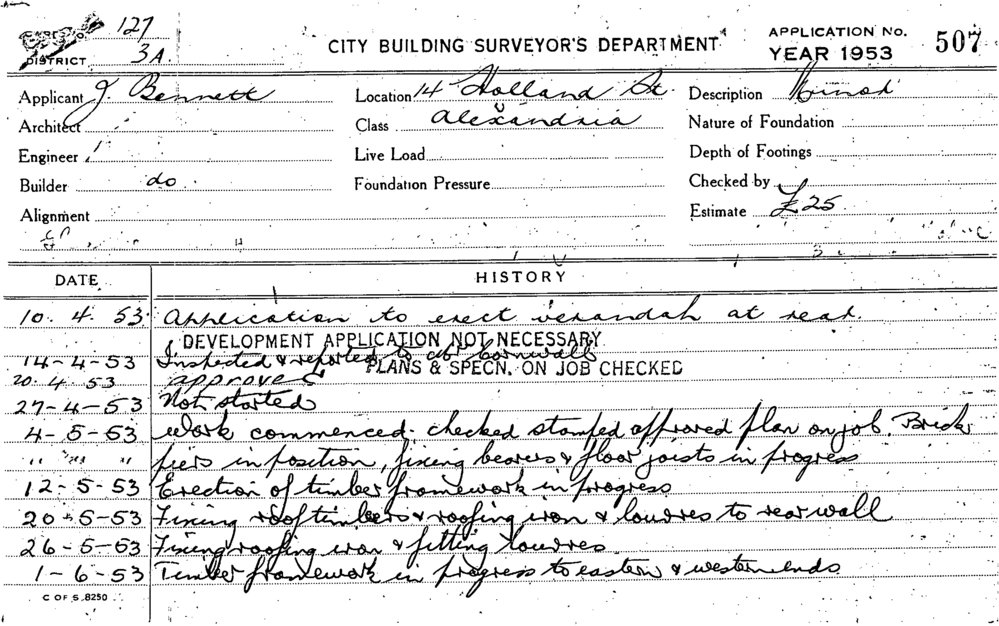 127
DISTRICT 3A.
CITY BUILDING SURVEYOR'S DEPARTMENT
APPLICATION No. 507
YEAR 1953
Applicant J Bennett
Location 14 Holland St.
Description Minor
Architect
Class Alexandria
Nature of Foundation
Engineer
Live Load
Depth of Footings
Builder do.
Foundation Pressure
Checked by
Alignment
Estimate £25
DATE HISTORY
10. 4. 53 Application to erect verandah at rear.
DEVELOPMENT APPLICATION NOT NECESSARY
14-4-53 Inspected & reported to Cornwall
PLANS & SPECN. ON JOB CHECKED
20. 4. 53 approved
27-4-53 Not started
4-5-53 Work commenced. checked stamped approved plan on job. Brick
" " " piers in position, fixing bearers & floor joists in progress
12-5-53 Erection of timber framework in progress
20-5-53 Fixing roof timbers & roofing iron & louvres to rear wall
26-5-53 Fixing roofing iron & fitting louvres
1-6-53 Timber framework in progress to eastern & western ends
C OF S. 8250